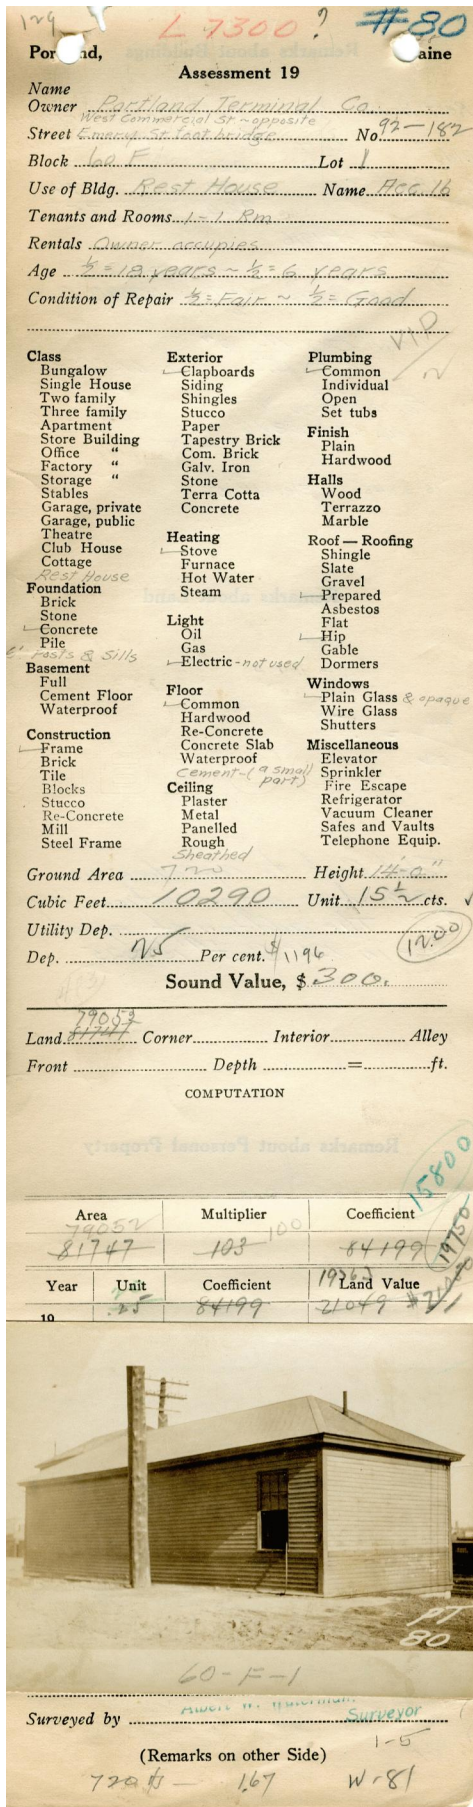 129
L 7300 ?
#80
Portland, Maine
Assessment 19
Name
Owner Portland Terminal Co.
West Commercial St ~ opposite
Street Emery St. foot bridge No 92-182
Block 60 F Lot 1
Use of Bldg. Rest House Name Acc. 16
Tenants and Rooms 1-1 Rm
Rentals Owner occupies
Age ½ = 18 years ~ ½ = 6 years
Condition of Repair ½ = Fair ~ ½ = Good
Class
Bungalow
Single House
Two family
Three family
Apartment
Store Building
Office "
Factory "
Storage "
Stables
Garage, private
Garage, public
Theatre
Club House
Cottage
Rest House
Foundation
Brick
Stone
Concrete
Pile
Posts & Sills
Basement
Full
Cement Floor
Waterproof
Construction
Frame
Brick
Tile
Blocks
Stucco
Re-Concrete
Mill
Steel Frame
Exterior
Clapboards
Siding
Shingles
Stucco
Paper
Tapestry Brick
Com. Brick
Galv. Iron
Stone
Terra Cotta
Concrete
Heating
Stove
Furnace
Hot Water
Steam
Light
Oil
Gas
Electric - not used
Floor
Common
Hardwood
Re-Concrete
Concrete Slab
Waterproof
Cement - (a small part)
Ceiling
Plaster
Metal
Panelled
Rough
Sheathed
Plumbing
Common
Individual
Open
Set tubs
Finish
Plain
Hardwood
Halls
Wood
Terrazzo
Marble
Roof — Roofing
Shingle
Slate
Gravel
Prepared
Asbestos
Flat
Hip
Gable
Dormers
Windows
Plain Glass & opaque
Wire Glass
Shutters
Miscellaneous
Elevator
Sprinkler
Fire Escape
Refrigerator
Vacuum Cleaner
Safes and Vaults
Telephone Equip.
Ground Area 720 Height 14'-0"
Cubic Feet 10290 Unit 15½ cts.
Utility Dep.
12.00
Dep. 25 Per cent. $1196
Sound Value, $ 300.
79052
Land 81747 Corner Interior Alley
Front Depth = ft.
COMPUTATION
15800
19750
Area Multiplier Coefficient
79052 100
81747 103 84199
Year Unit Coefficient Land Value
19763
19 .25 84199 21049
PT
80
60-F-1
Surveyed by Albert W. Waterman, Surveyor
(Remarks on other Side)
1-5
720 — 167 W-81